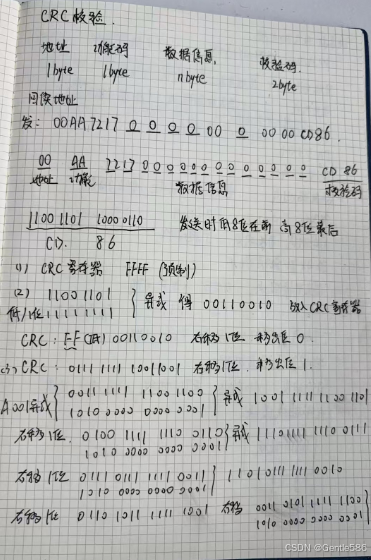 CRC校验.
地址 功能码 数据信息 校验码
1byte 1byte nbyte 2byte
地址
发: 00AA7217 0 0 0 0 00 0 0000 CD86.
00 AA 7217 0 0 0 0 0 0 0 0 0 0 0 0 CD 86
地址 功能 数据信息 校验码
1100 1101 1000 0110 发送时低8位在前 高8位最后
CD. 86
(1) CRC寄存器 FFFF (预制)
(2) 11001101
低8位11111111 } 异或 得 00110010 放入CRC寄存器
CRC: FF(高) 00110010 右移1位 移出位 0.
(3) CRC: 0111 1111 1001 1001 右移1位. 移出位 1.
A001异或 0011 1111 1100 1100
1010 0000 0000 0001 } 异或 1001 1111 1100 1101
右移1位. 0100 1111 1110 0110
1010 0000 0000 0001 } 异或 1110 1111 1110 0111
右移1位 0111 0111 1111 0011
1010 0000 0000 0001 } 1101 0111 1111 0010
右移1位 0110 1011 1111 1001 右移 0011 0101 1111 1100
1010 0000 0000 0001
CSDN @Gentle586